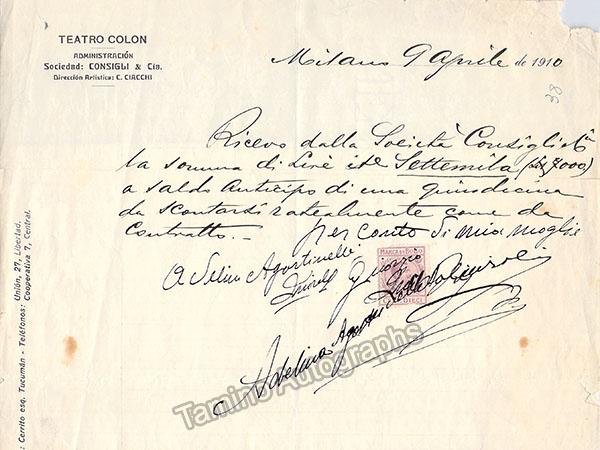 TEATRO COLON
ADMINISTRACIÓN
Sociedad: CONSIGLI & Cía.
Dirección Artística: C. CIACCHI
Milano 9 Aprile de 1910
38
Ricevo dalla Società Consigli & Cia
la somma di Lire it Settemila (7000)
a saldo anticipo di una quindicina
da scontarsi ratealmente come da
Contratto. — per conto di mia moglie
Adelina Agostinelli
Quiroli
MARCA DA BOLLO
DIECI
Adelina Agostinelli
: Cerrito esq. Tucumán - Teléfonos: Unión, 27, Libertad.
Cooperativa 7, Central.
Tamino Autographs